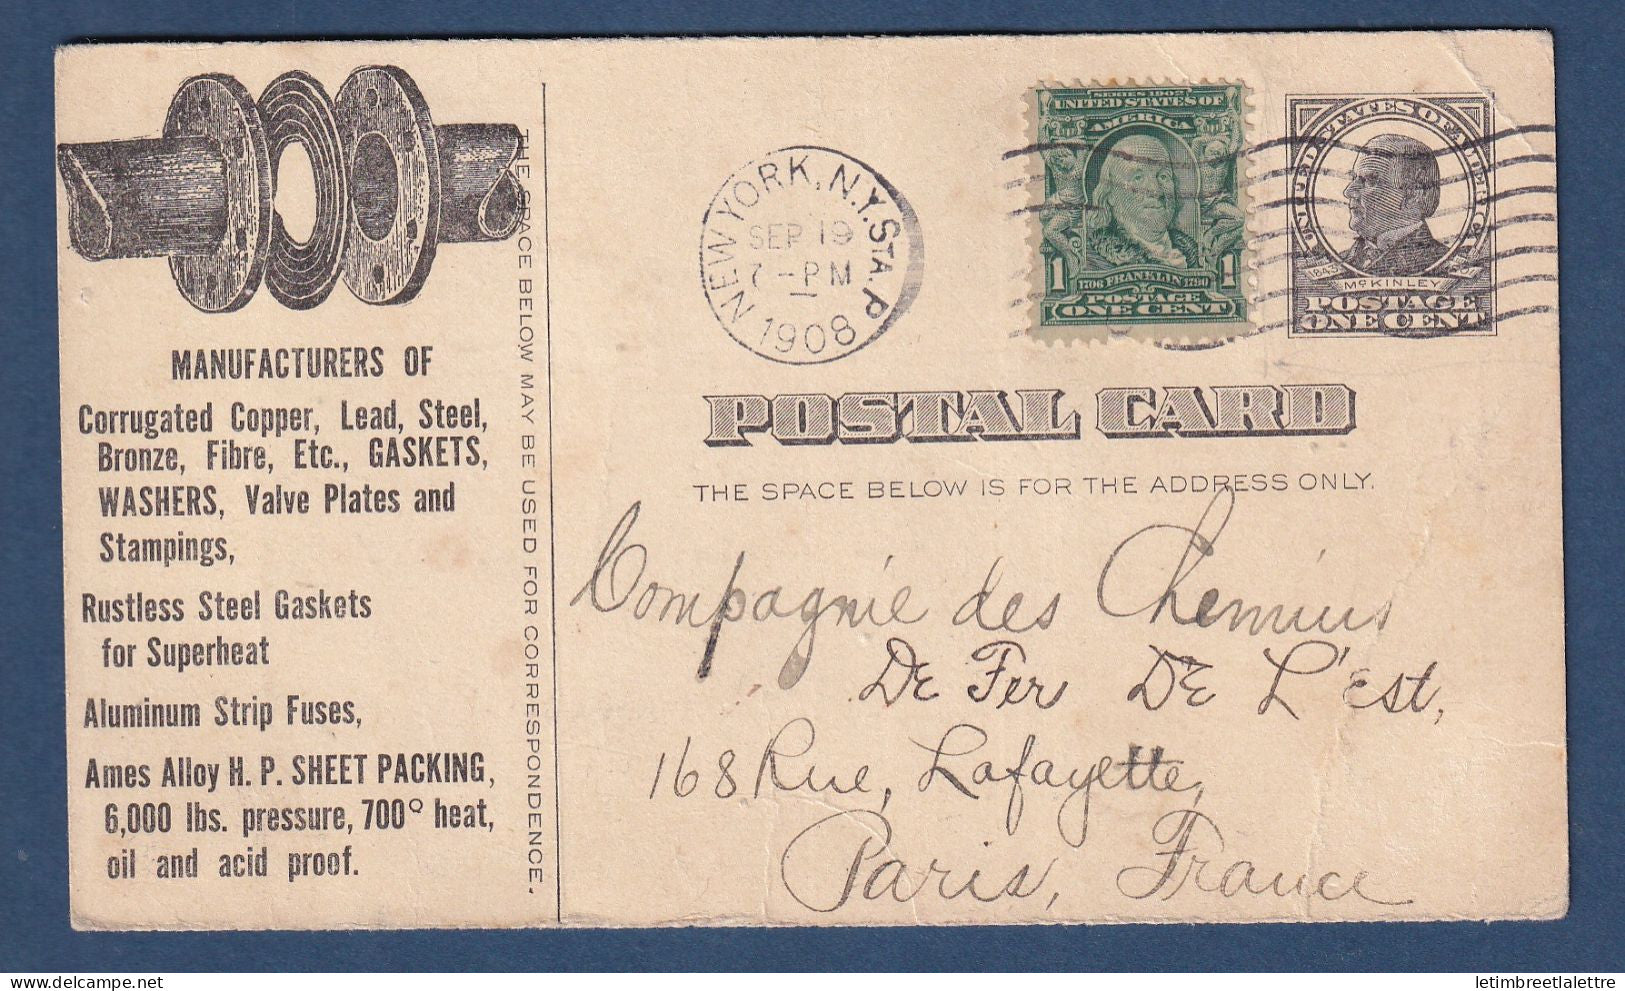 MANUFACTURERS OF
Corrugated Copper, Lead, Steel,
Bronze, Fibre, Etc., GASKETS,
WASHERS, Valve Plates and
Stampings,
Rustless Steel Gaskets
for Superheat
Aluminum Strip Fuses,
Ames Alloy H. P. SHEET PACKING,
6,000 lbs. pressure, 700° heat,
oil and acid proof.
THE SPACE BELOW MAY BE USED FOR CORRESPONDENCE.
NEW YORK, N.Y. STA. P
SEP 19
7-PM
1908
SERIES 1902
UNITED STATES OF
AMERICA
1 1
1706 FRANKLIN 1790
POSTAGE
ONE CENT
UNITED STATES OF AMERICA
1843
McKINLEY
POSTAGE
ONE CENT
POSTAL CARD
THE SPACE BELOW IS FOR THE ADDRESS ONLY.
Compagnie des Chemins
De Fer De L'Est,
168 Rue, Lafayette,
Paris, France
letimbreetlalettre